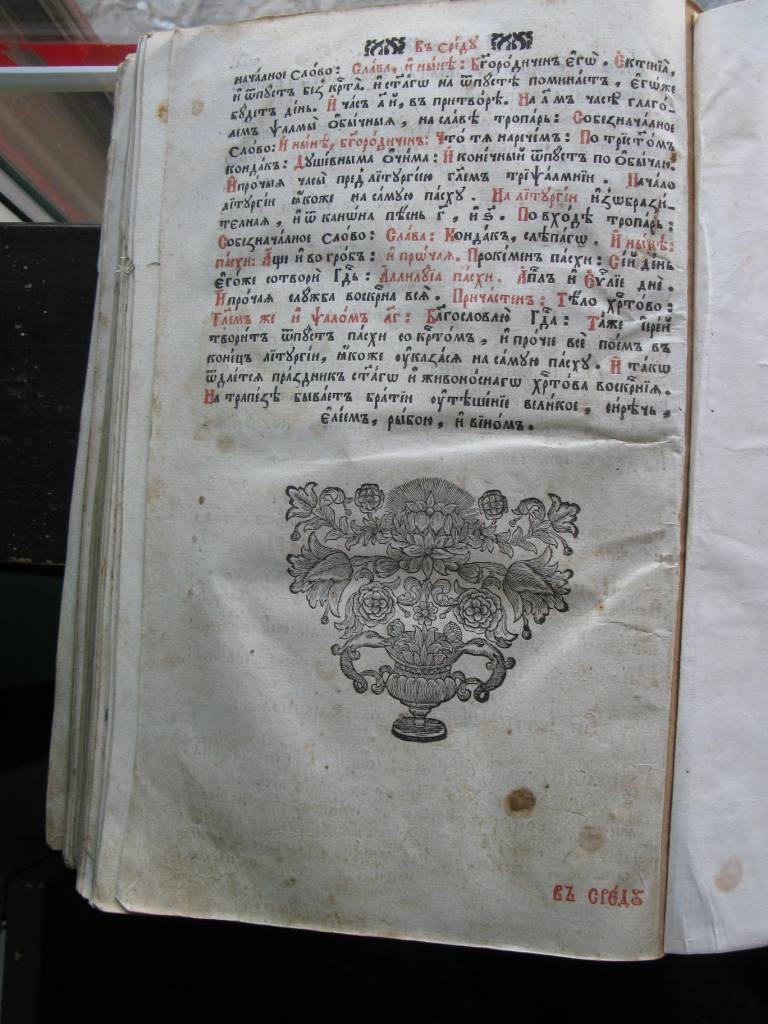 Въ сре́дꙋ
нача́лное сло́во: Сла́ва, и҆ ны́нѣ: Бг҃оро́диченъ є҆гѡ̀. Є҆ктенїа̀,
и҆ ѿпꙋ́стъ без̾ крⷭ҇та̀. и҆ ст҃а́гѡ на ѿпꙋ́стѣ помина́етъ, є҆гѡ́же
бꙋ́детъ де́нь. И҆ ча́съ а҃й, въ притво́рѣ. На а҃мъ часѣ̀ глаго́-
лемъ ѱалмы̀ ѡ҆бы́чныѧ, на сла́вѣ тропа́рь: Собезнача́лное
сло́во: И҆ ны́нѣ, бг҃оро́диченъ: Что́ тѧ нарече́мъ: По трист҃о́мъ
конда́къ: Дꙋше́вныма ѻ҆чи́ма: И҆ коне́чный ѿпꙋ́стъ по ѡ҆бы́чаю.
И҆ про́чыѧ часы̀ пред̾ лїтꙋргі́ею гл҃емъ трїѱа́лмнїи. Нача́ло
лїтꙋргі́и ꙗ҆́коже на са́мꙋю па́схꙋ. На лїтꙋргі́и и҆з̾ѡбрази́-
тєлнаѧ, и҆ ѿ канѡ́на пѣ́снь г҃, и҆ ѕ҃. По вхо́дѣ тропа́рь:
Собезнача́лное сло́во: Сла́ва: Конда́къ, слѣпа́гѡ. И҆ ны́нѣ:
па́схи: А҆́ще и҆ во гро́бъ: и҆ прѡ́чаѧ. Прокі́менъ па́схи: Се́й де́нь
є҆го́же сотворѝ Гдⷭ҇ь: А҆ллилꙋ́їа па́схи. А҆пⷭ҇лъ и҆ Є҆ѵⷢ҇лїе днѐ.
И҆ про́чаѧ слꙋ́жба воскрⷭ҇на всѧ̀. Прича́стенъ: Тѣ́ло хрⷭ҇то́во:
Гл҃емъ же и҆ ѱало́мъ л҃г: Блгⷭ҇ословлю̀ Гдⷭ҇а: Та́же і҆ере́й
твори́тъ ѿпꙋ́стъ па́схи со крⷭ҇то́мъ, и҆ про́чїе всѐ пое́мъ въ
коне́цъ лїтꙋргі́и, ꙗ҆́коже ᲂу҆каза́сѧ на са́мꙋю па́схꙋ. И҆ та́кѡ
ѿдае́тсѧ пра́здникъ ст҃а́гѡ и҆ живоно́снагѡ хрⷭ҇то́ва воскрⷭ҇нїѧ.
На трапе́зѣ быва́етъ бра́тїи ᲂу҆тѣше́нїе вели́кое, си́рѣчь,
є҆ле́емъ, ры́бою, и҆ вїно́мъ.
въ сре́дꙋ